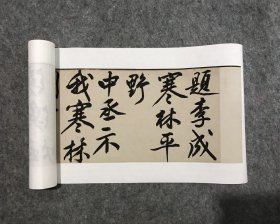 題李成
寒林平
野
中丞示
我寒林